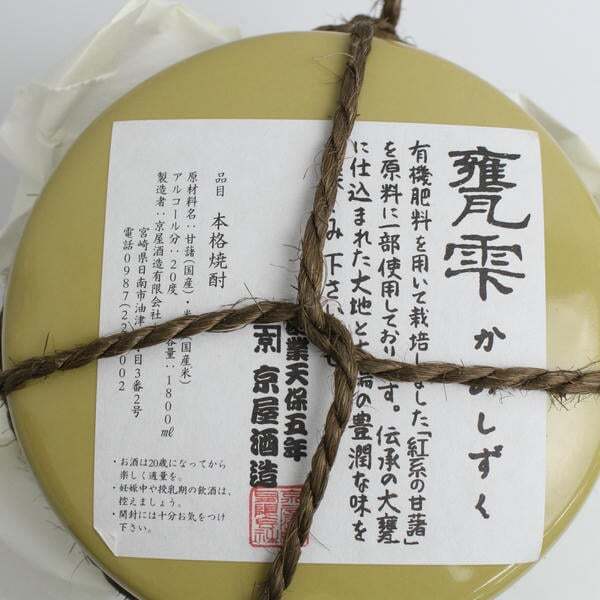 甕雫
かめしずく
有機肥料を用いて栽培しました「紅系の甘藷」
を原料に一部使用しております。伝承の大甕
に仕込まれた大地と
の豊潤な味を
み下さい
創業天保五年
京屋酒造
品目 本格焼酎
原材料名:甘藷(国産)・米
(国産米)
アルコール分:20度
容量:1800㎖
製造者:京屋酒造有限会社
宮崎県日南市油津
目3番2号
電話0987(22)
002
・お酒は20歳になってから
楽しく適量を。
・妊娠中や授乳期の飲酒は、
控えましょう。
・開封には十分お気をつけ
下さい。